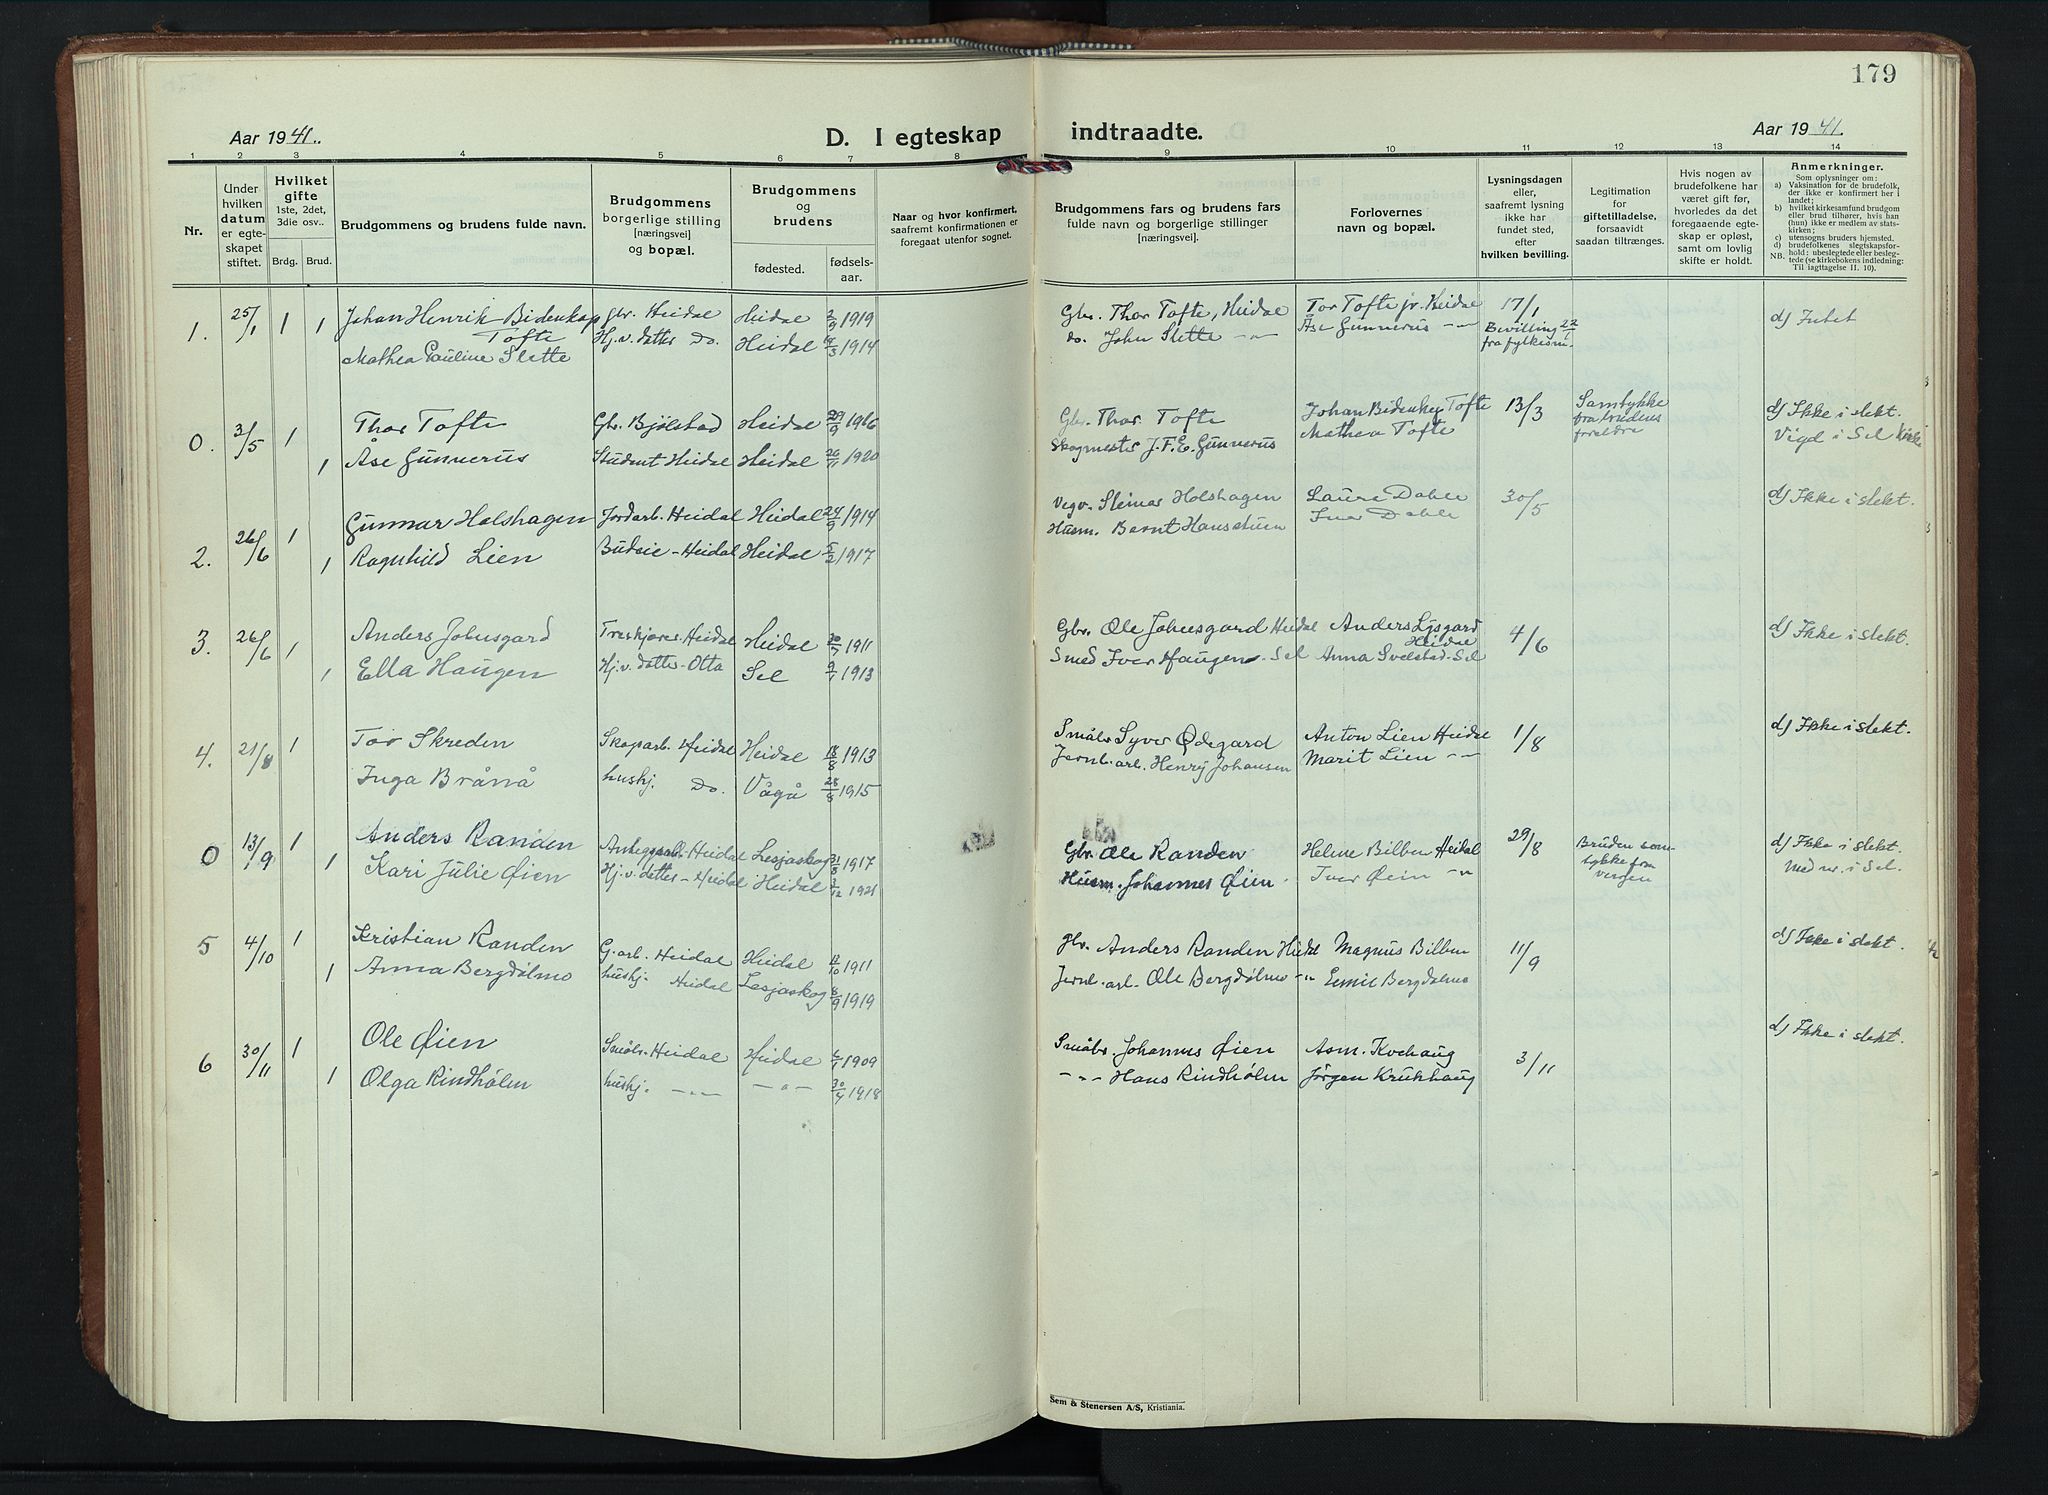 179
Aar 1941.
D. I egteskap indtraadte.
Aar 1941.
1 2 3 4 5 6 7 8 9 10 11 12 13 14
Nr.
Under hvilken datum er egteskapet stiftet.
Hvilket gifte
1ste, 2det, 3die osv..
Brdg. Brud.
Brudgommens og brudens fulde navn.
Brudgommens borgerlige stilling [næringsvei] og bopæl.
Brudgommens og brudens
fødested.
fødselsaar.
Naar og hvor konfirmert, saafremt konfirmationen er foregaat utenfor sognet.
Brudgommens fars og brudens fars fulde navn og borgerlige stillinger [næringsvei].
Forlovernes navn og bopæl.
Lysningsdagen eller, saafremt lysning ikke har fundet sted, efter hvilken bevilling.
Legitimation for giftetilladelse, forsaavidt saadan tiltrænges.
Hvis nogen av brudefolkene har været gift før, hvorledes da det foregaaende egteskap er opløst, samt om lovlig skifte er holdt.
Anmerkninger.
Som oplysninger om:
a) Vaksination for de brudefolk, der ikke er konfirmert her i landet;
b) hvilket kirkesamfund brudgom eller brud tilhører, hvis han (hun) ikke er medlem av statskirken;
c) utensogns bruders hjemsted.
d) brudefolkenes slegtskapsforhold: ubeslegtede eller beslegtede (se kirkebokens indledning:
NB. Til iagttagelse II. 10).
1. 25/1 1 1 Johan Henrik Bidenkap Tofte Gbr. Heidal Heidal 2/9 1919 Gbr. Thor Tofte, Heidal Tor Tofte jr. Heidal 17/1 d) Intet
Mathea Pauline Slette Hj.v. datter Do. Heidal 14/3 1914 do. John Slette -"- Åse Gunnerus -"- Bevilling 22/1 fra fylkesm.
0. 3/5 1 Thor Tofte Gbr. Bjølstad Heidal 29/9 1916 Gbr. Thor Tofte Johan Bidenkap Tofte 13/3 Samtykke fra brudens foreldre d) Ikke i slekt.
1 Åse Gunnerus Student Heidal Heidal 26/11 1920 Skogmester J.F.E. Gunnerus Mathea Tofte Vigd i Sel Kirke
2. 26/6 1 Gunnar Holshagen Jordarb. Heidal Heidal 24/9 1914 Vegv. Steinar Holshagen Laura Dahle 30/5 d) Ikke i slekt.
1 Ragnhild Lien Budeie - Heidal Heidal 5/2 1917 Husm. Bernt Hansstuen Ivar Dahle
3. 26/6 1 Anders Johnsgard Treskjærer Heidal Heidal 20/7 1911 Gbr. Ole Johnsgard Heidal Anders Lysgard Heidal 4/6 d) Ikke i slekt.
1 Ella Haugen Hj.v. datter - Otta Sel 9/1 1913 Smed Iver Haugen - Sel Anna Svelstad - Sel
4. 21/8 1 Tor Skreden Skogsarb. Heidal Heidal 18/8 1913 Småbr. Syver Ødegard Anton Lien Heidal 1/8 d) Ikke i slekt.
Inga Brånå hushj. Do. Vågå 28/8 1915 Jernb.arb. Henry Johansen Marit Lien -"-
0 13/9 1 Anders Randen Anleggsarb. Heidal Lesjaskog 31/8 1917 Gbr. Ole Randen Helene Bilben Heidal 29/8 Bruden samtykke fra vergen d) Ikke i slekt.
1 Kari Julie Øien Hj.v. datter - Heidal Heidal 3/12 1921 Husm. Johannes Øien Iver Øein -"- Med nr. i Sel.
5 4/10 1 Kristian Randen G.arb. Heidal Heidal 12/10 1911 Gbr. Anders Randen Heidal Magnus Bilben 11/9 d) Ikke i slekt.
1 Anna Bergdølmo hushj. Heidal Lesjaskog 8/9 1919 Jernb.arb. Ole Bergdølmo -"- Emil Bergdølmo
6 30/11 1 Ole Øien Småbr. Heidal Heidal 6/1 1909 Småbr. Johannes Øien Asm. Kvehaug 3/11 d) Ikke i slekt.
1 Olga Rindhølen hushj. -"- -"- 30/4 1918 -"- Hans Rindhølen Jørgen Krukhaug
Sem & Stenersen A/S, Kristiania.